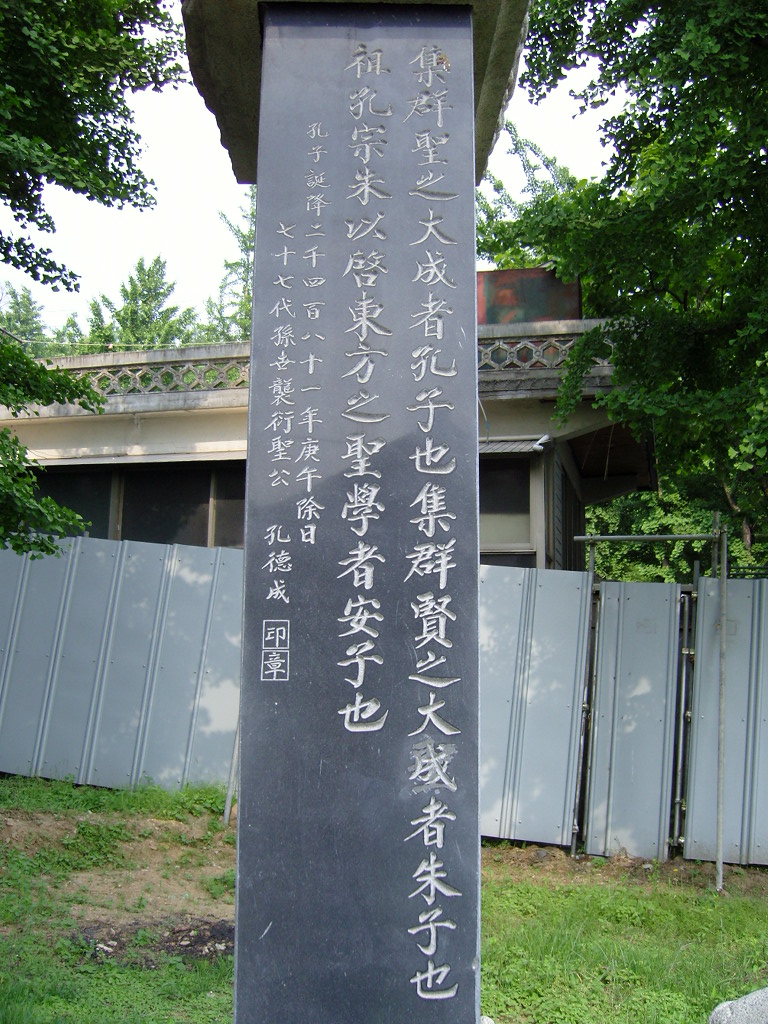 集群聖之大成者孔子也集群賢之大成者朱子也
祖孔宗朱以啓東方之聖學者安子也
孔子誕降二千四百八十一年庚午除日
七十七代孫世襲衍聖公 孔德成
印章